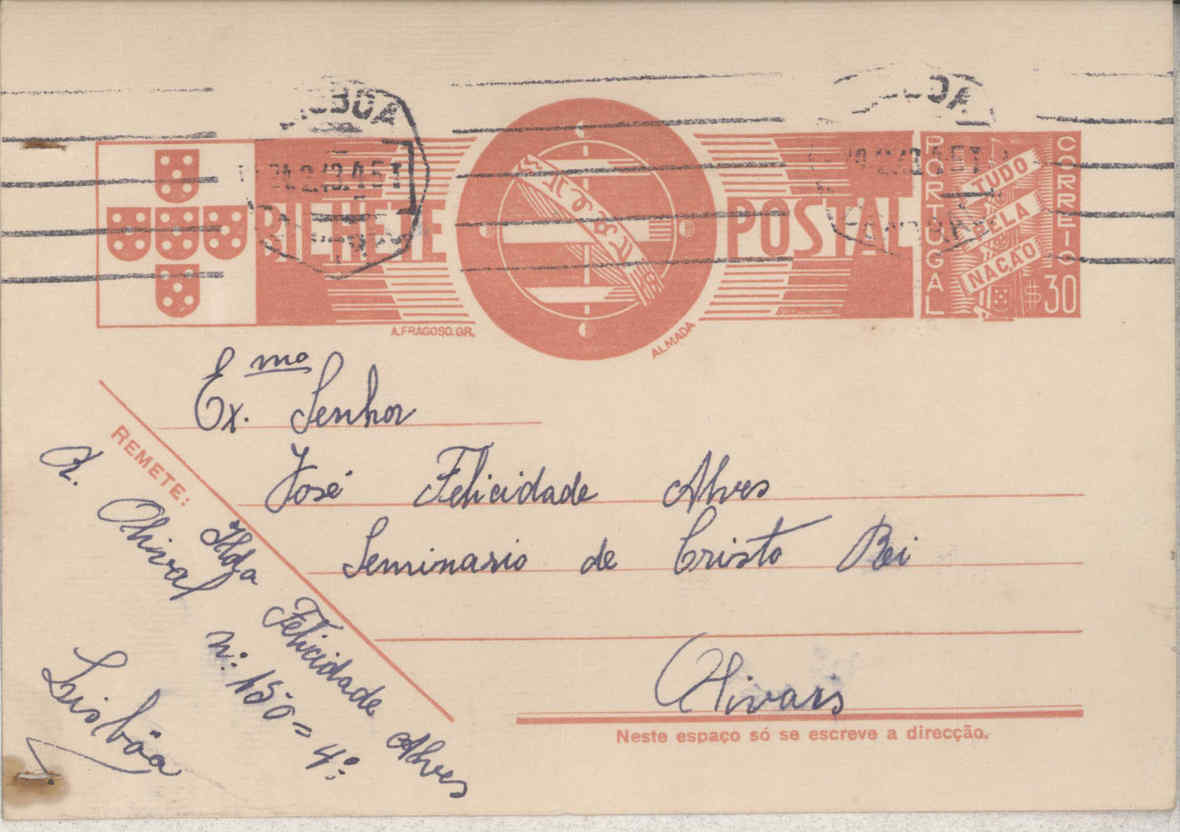 LISBOA
BILHETE POSTAL
PORTUGAL
CORREIO
TUDO
PELA
NAÇÃO
$30
A. FRAGOSO. GR.
ALMADA
Ex.mo Senhor
José Felicidade Alves
Seminario de Cristo Rei
Olivais
Neste espaço só se escreve a direcção.
REMETE:
Ilda Felicidade Alves
Olival nº: 150 = 4º:
Lisbôa